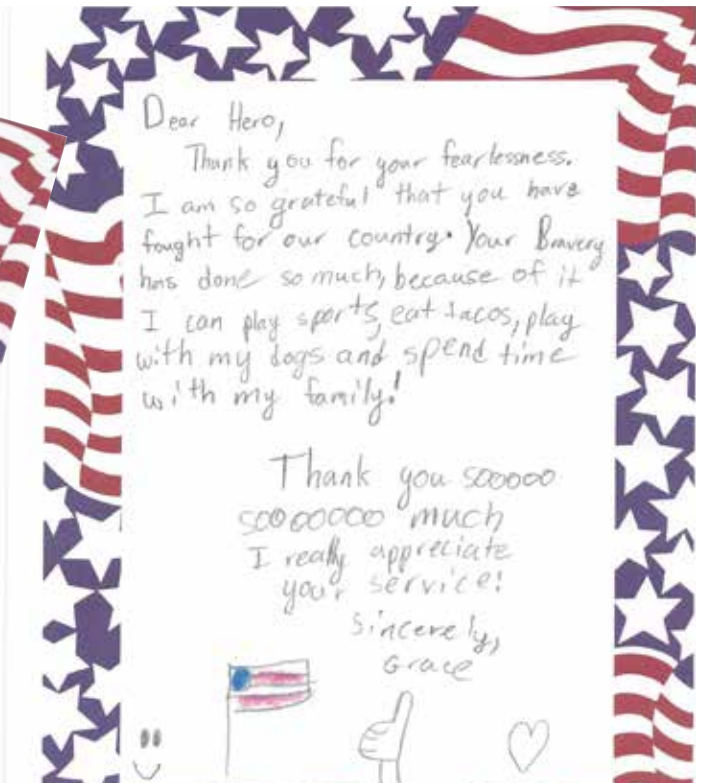 Dear Hero,
Thank you for your fearlessness.
I am so grateful that you have
fought for our country. Your Bravery
has done so much, because of it
I can play sports, eat tacos, play
with my dogs and spend time
with my family!
Thank you sooooo
soooooooo much
I really appreciate
your service!
Sincerely,
Grace